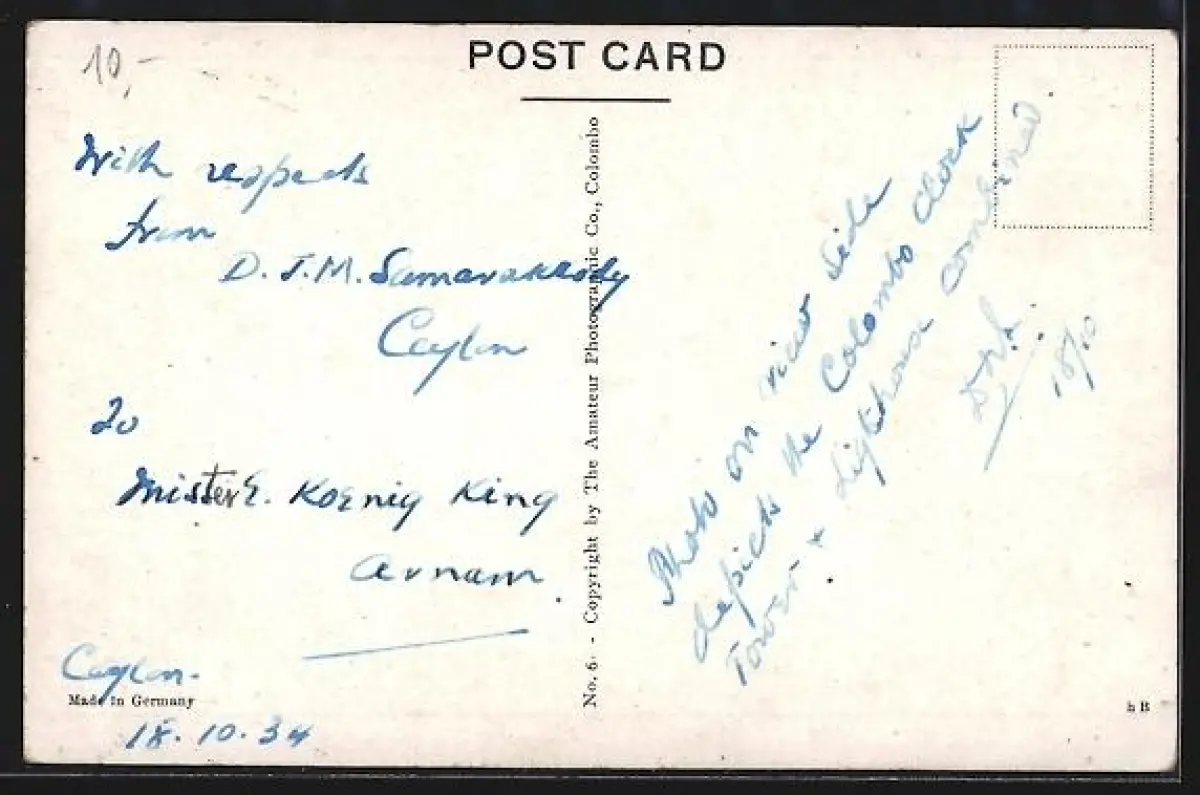 10,-
POST CARD
With respects
from
D. J. M. Samarakkody
Ceylon
To
Mister E. Koenig King
Ceylon.
Made in Germany
18.10.34
No. 6. - Copyright by The Amateur Photographic Co., Colombo
Photo on view side
depicts the Colombo Clock
Tower & Lighthouse combined
18/10
h B